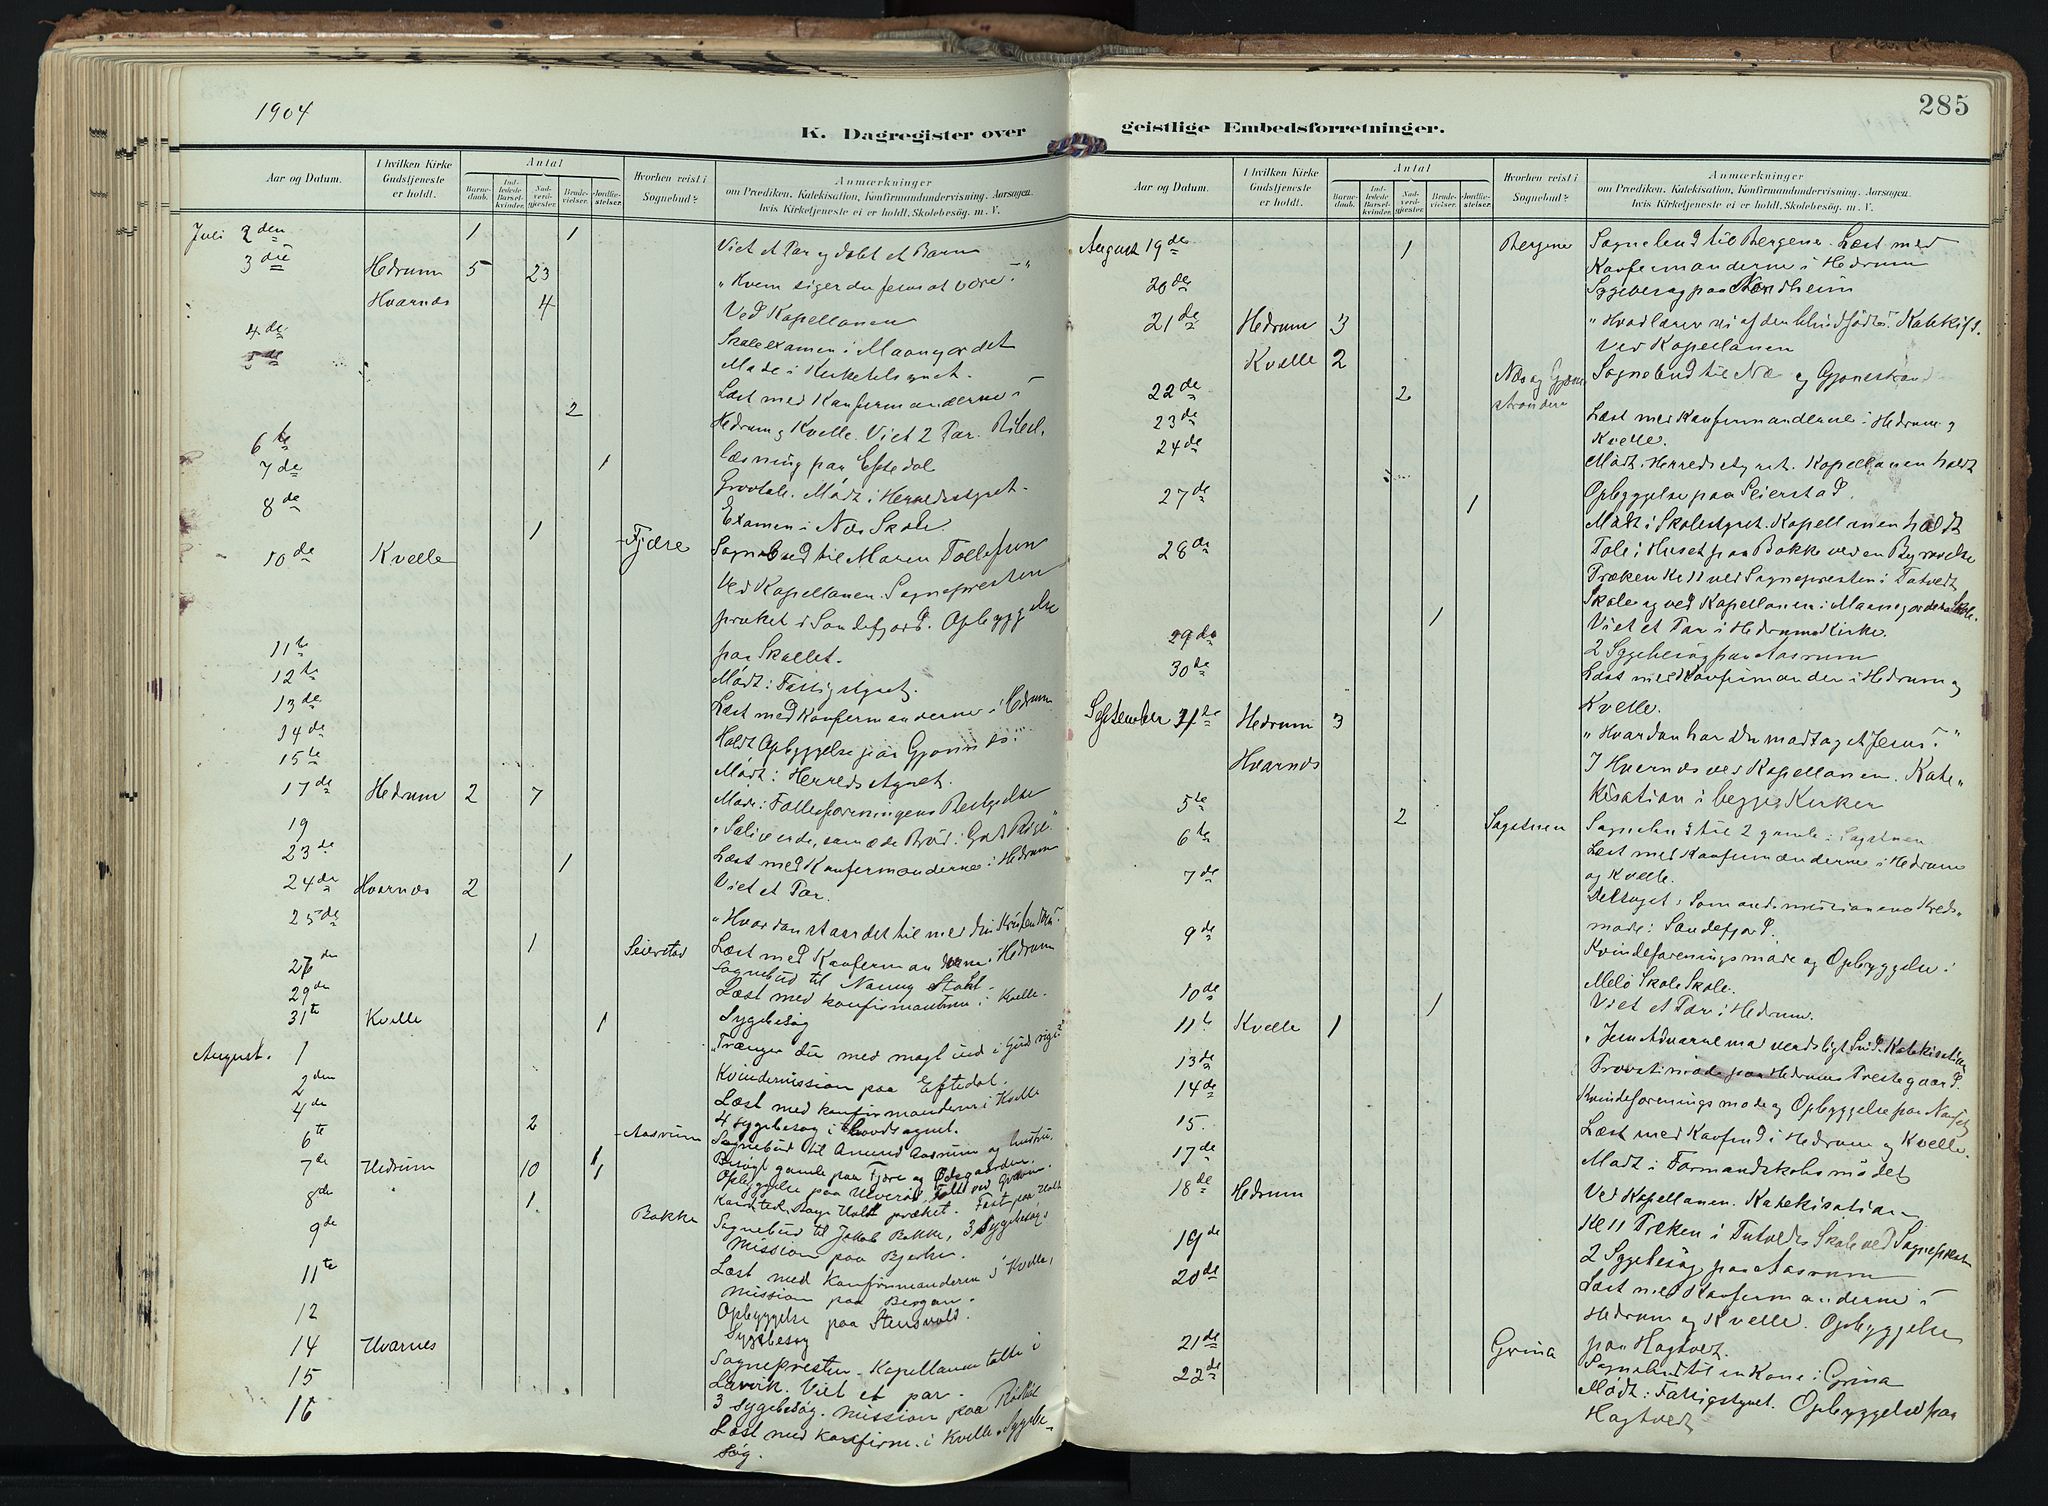 1904
K. Dagregister over
Aar og Datum. I hvilken Kirke Gudstjeneste er holdt. Antal Barnedaab. Indledede Barselkvinder. Nadverdgjester. Brudevielser. Jordfæstelser. Hvorhen reist i Sognebud? Anmærkninger
om Prædiken, Katekisation, Konfirmandundervisning, Aarsagen,
hvis Kirketjeneste ei er holdt, Skolebesøg, m. V.
Juli 2den 1 1 Viet et Par og døbt et Barn
3die Hedrum 5 23 "Hvem siger du Jesus at være?"
Hvarnes 4 Ved Kapellanen
4de Skoleexamen i
5de Møde i
Læst med Konfirmanderne i
2 Hedrum og Kvelle. Viet 2 Par.
6te læsning paa Eftedal
7de 1 Mødt i Herredsstyret.
8de Examen i Næs Skole
1 Fjære Sognebud til Maren Tollefsen
10de Kvelle Ved Kapellanen. Sognepresten
præket i Sandefjord. Opbyggelse
paa Skallet.
11te Mødt i Fattigstyret.
12te Læst med Konfirmanderne i Hedrum
13de Holdt Opbyggelse paa
14de Mødt i Herredsstyret.
15te Møde i
17de Hedrum 2 7 "Salig er de, som æde Brød i Guds Rige."
19 Læst med Konfirmanderne i Hedrum
23de 1 Viet et Par.
24de Hvarnes 2 "Hvordan staar det til med din Kristendom?"
25de Læst med Konfirmanderne i Hedrum
1 Seierstad Sognebud til Nanny Stahl.
27de Læst med konfirmanterne i Kvelle.
29de Sygebesøg
31te Kvelle 1 "Trænger du med magt ind i Guds rige?"
August. 1 Kvindemission paa Eftedal.
2den Læst med konfirmanderne i Kvelle
4de 4 sygebesøg i
6te 2 Aasrum Sognebud til Amund Aasrum og
1 Besøgt gamle paa Fjære og Ødegaarden.
7de Hedrum 10 1 Opbyggelse paa
præket. Fest paa Holt
8de 1 Bakke Sognebud til Jakob Bakke, 3 Sygebesøg.
9de Mission paa
11te Læst med konfirmanderne i Kvelle,
mission paa Bergan.
12 Opbyggelse paa Stensvold.
Sygebesøg
14 Hvarnes Sognepresten. Kapellanen talte i
15 Larvik. Viet et par.
3 sygebesøg. mission paa
16 Læst med konfirm. i Kvelle. Sygebe-
søg.
285
geistlige Embedsforretninger.
Aar og Datum. I hvilken Kirke Gudstjeneste er holdt. Antal Barnedaab. Indledede Barselkvinder. Nadverdgjester. Brudevielser. Jordfæstelser. Hvorhen reist i Sognebud? Anmærkninger
om Prædiken, Katekisation, Konfirmandundervisning, Aarsagen,
hvis Kirketjeneste ei er holdt, Skolebesøg, m. V.
August 19de 1 Bergene Sognebud til Bergene. Læst med
Konfirmanderne i Hedrum
20de Sygebesøg paa
21de Hedrum 3 "Hvad lærer vi af den blindfødte". Katekis.
Kvelle 2 Ved Kapellanen
22de 2 Næs og Sognebud til Næs og
23de Læst med Konfirmanderne i Hedrum og
Kvelle.
24de Mødt i Herredsstyret. Kapellanen holdt
Opbyggelse paa Seierstad.
27de 1 Mødt i Skolestyret. Kapellanen holdt
Tale i Huset paa Bakke ved en Begravelse
28de Præken Kl 11 ved Sognepresten i Tutvedt
Skole og ved Kapellanen i
1 Viet et Par i Hedrum Kirke.
29de 2 Sygebesøg paa Aasrum
30de Læst med Konfirmander i Hedrum og
Kvelle.
September Hedrum 3 "Hvordan har du modtaget Jesus?"
Hvarnes I Hvarnes ved Kapellanen. Kate-
kisation i begge Kirker
5te 2 Sagstuen Sognebud til 2 gamle i Sagstuen
6te Læst med Konfirmanderne i Hedrum
og Kvelle.
7de Deltaget i Sømandsmissionens Kreds-
møde i Sandefjord.
9de Kvindeforeningsmøde og Opbyggelse i
Melø Skole Skole.
10de 1 Viet et Par i Hedrum.
11te Kvelle 1 Katekisation
13de paa Hedrums Prestegaard.
14de Kvindeforeningsmøde og Opbyggelse paa
15. Læst med Konfirmd i Hedrum og Kvelle.
17de Mødt i Formandskabsmødet
18de Hedrum Ved Kapellanen. Katekisation
Kl 11 Præken i Tutvedt Skole ved Sognepresten
19de 2 Sygebesøg paa Aasrum
20de Læst med Konfirmanderne i
Hedrum og Kvelle. Opbyggelse
21de Grina paa Hagtvedt.
22de Sognebud til en Kone i Grina
Mødt i Fattigstyret. Opbyggelse paa
Hagtvedt